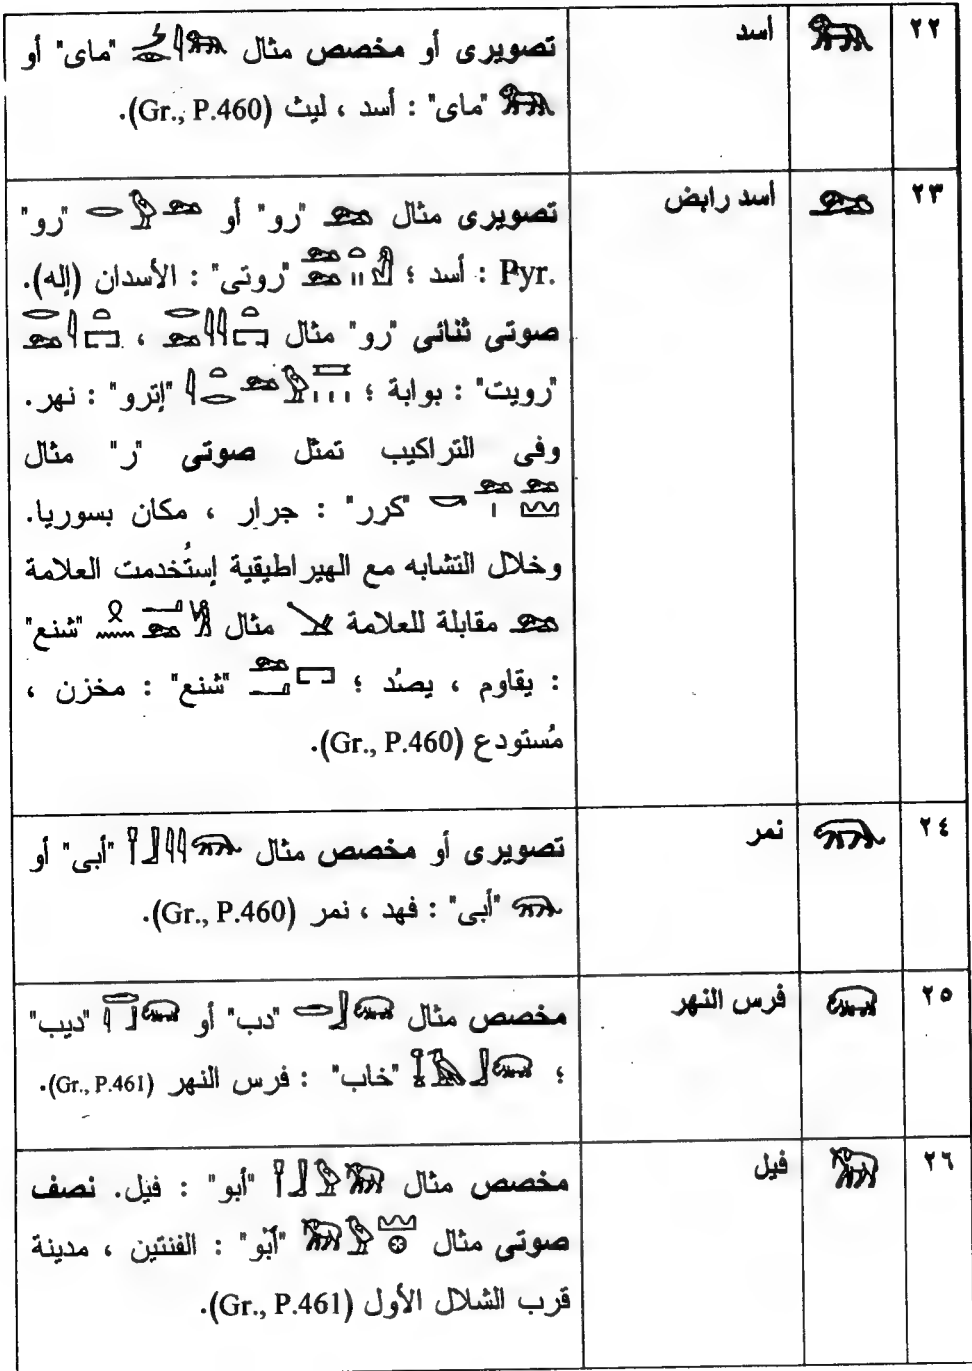 ٢٢ أسد تصويرى أو مخصص مثال "ماى" أو
"ماى" : أسد ، ليث (Gr., P.460).
٢٣ أسد رابض تصويرى مثال "رو" أو "رو"
Pyr. : أسد ؛ "روتى" : الأسدان (إله).
صوتى ثنائى "رو" مثال ،
"رويت" : بوابة ؛ "إترو" : نهر.
وفى التراكيب تمثل صوتى "ر" مثال
"كرر" : جرار ، مكان بسوريا.
وخلال التشابه مع الهيراطيقية إستُخدمت العلامة
مقابلة للعلامة مثال "شنع"
: يقاوم ، يصُد ؛ "شنع" : مخزن ،
مُستودع (Gr., P.460).
٢٤ نمر تصويرى أو مخصص مثال "أبى" أو
"أبى" : فهد ، نمر (Gr., P.460).
٢٥ فرس النهر مخصص مثال "دب" أو "ديب"
؛ "خاب" : فرس النهر (Gr., P.461).
٢٦ فيل مخصص مثال "أبو" : فيل. نصف
صوتى مثال "آبو" : الفنتين ، مدينة
قرب الشلال الأول (Gr., P.461).